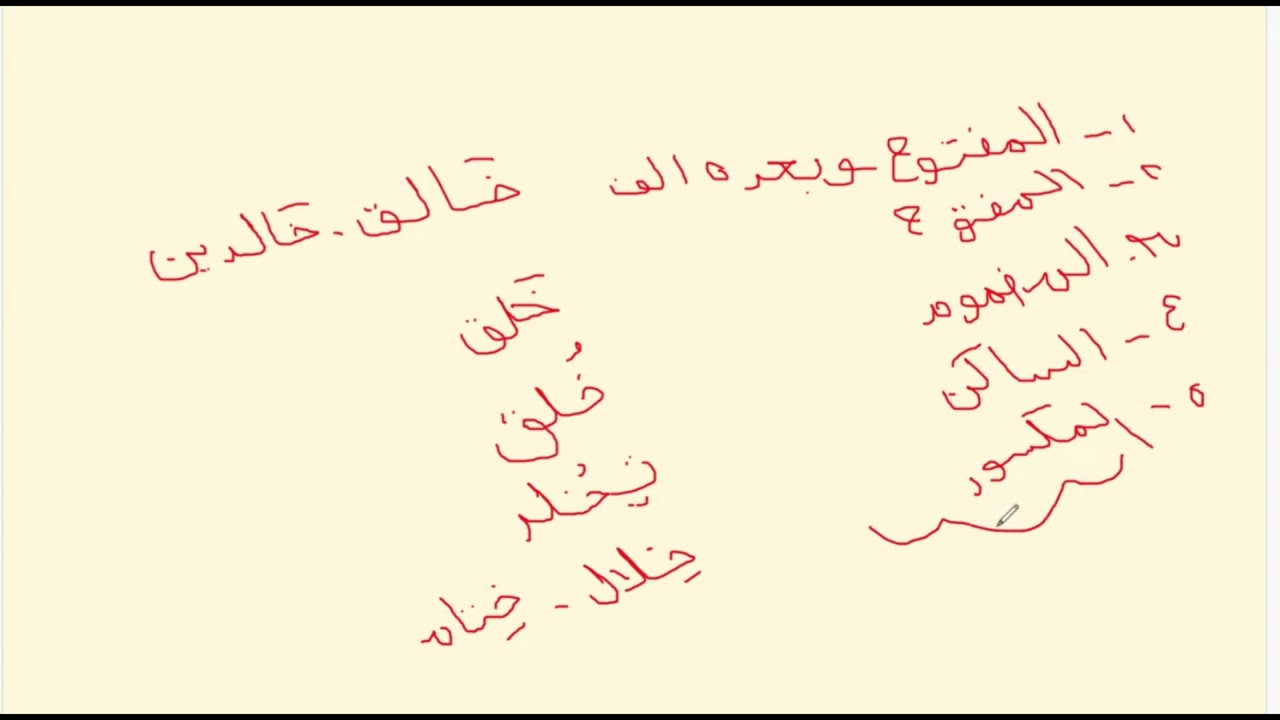 ١- المفتوح وبعده الف خَالق - خَالدين
٢- المفتوح خَلق
٣- المضموم خُلق
٤- الساكن
٥- المكسور خِلال - ختام